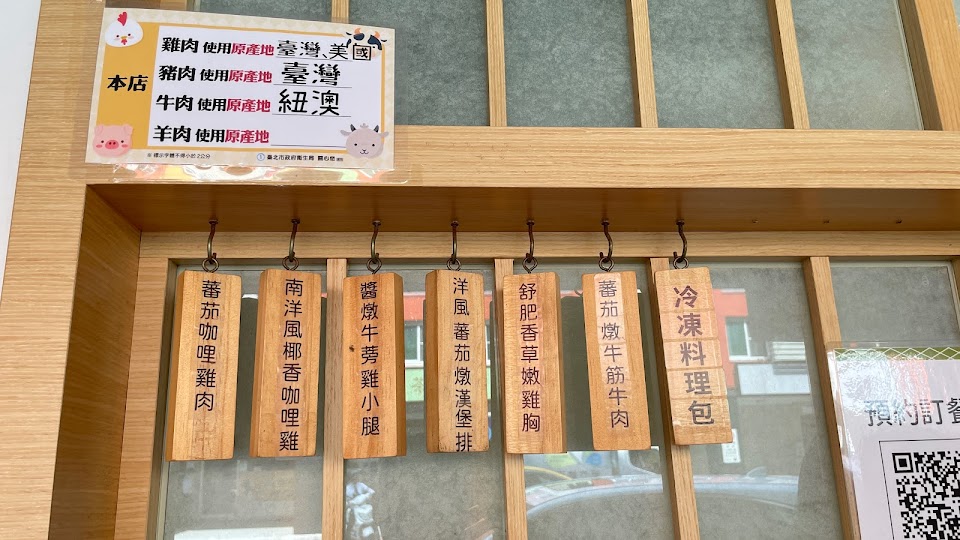 本店
雞肉 使用原產地 臺灣、美國
豬肉 使用原產地 臺灣
牛肉 使用原產地 紐澳
羊肉 使用原產地
※標示字體不得小於2公分
臺北市政府衛生局 關心您
冷凍料理包
蕃茄燉牛筋牛肉
舒肥香草嫩雞胸
洋風蕃茄燉漢堡排
醬燉牛蒡雞小腿
南洋風椰香咖哩雞
蕃茄咖哩雞肉
預約訂餐